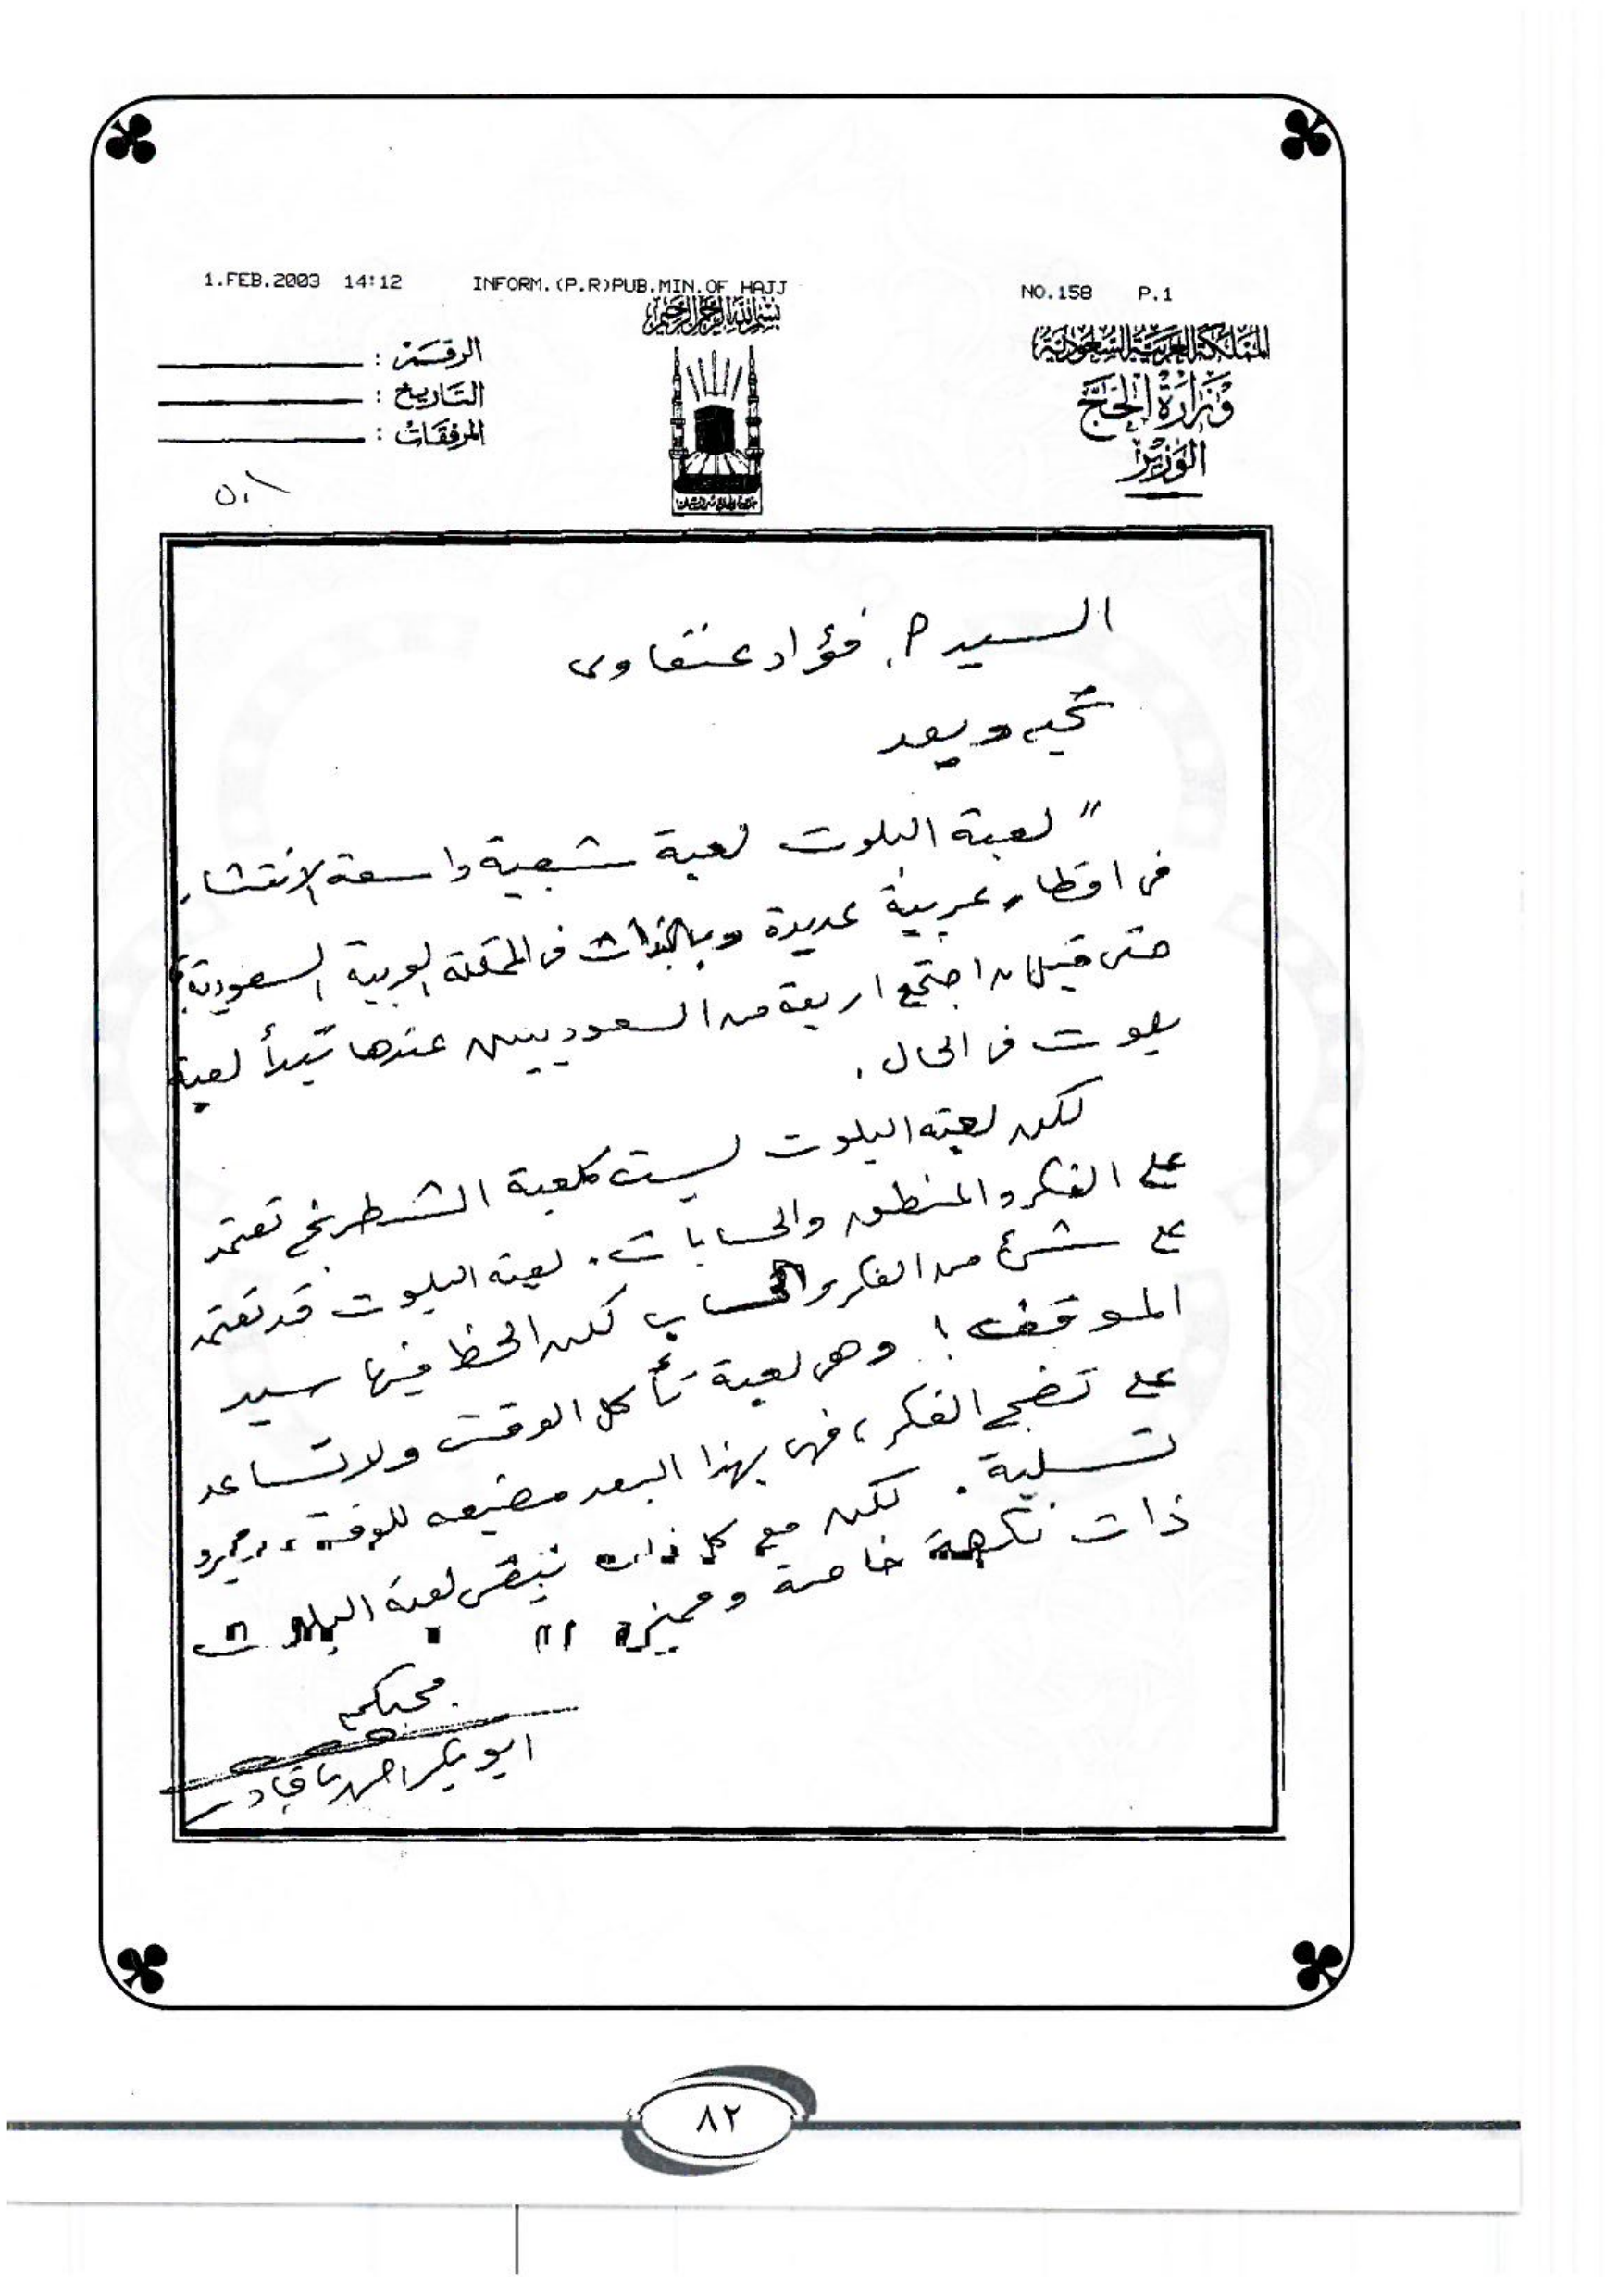 1.FEB.2003 14:12 INFORM.(P.R)PUB.MIN.OF HAJJ NO.158 P.1
بسم الله الرحمن الرحيم
المملكة العربية السعودية
وزارة الحج
الوزير
الرقم :
التاريخ :
المرفقات :
السيد م. فؤاد عنقاوى
تحيه وبعد
" لعبة البلوت لعبة شعبية واسعة الانتشار
فى اقطار عربية عديدة وبالذات فى المملكة العربية السعودية،
حتى قيل ان اجتمع اربعة من السعوديين عندها تبدأ لعبة
بلوت فى الحال.
لكن لعبة البلوت ليست كلعبة الشطرنج تعتمد
على الفكر والمنطق والحسابات. لعبة البلوت قد تعتمد
على شئ من الفكر والحساب لكن الحظ فيها سيد
الموقف! وهى لعبة تأكل الوقت ولا تساعد
على نضج الفكر، فهى بهذا البعد مضيعه للوقت، ومجرد
تسلية. لكن مع كل ذلك تبقى لعبة البلوت
ذات نكهة خاصة ومميزه "
محبكم
ابو بكر احمد باقادر
٨٢